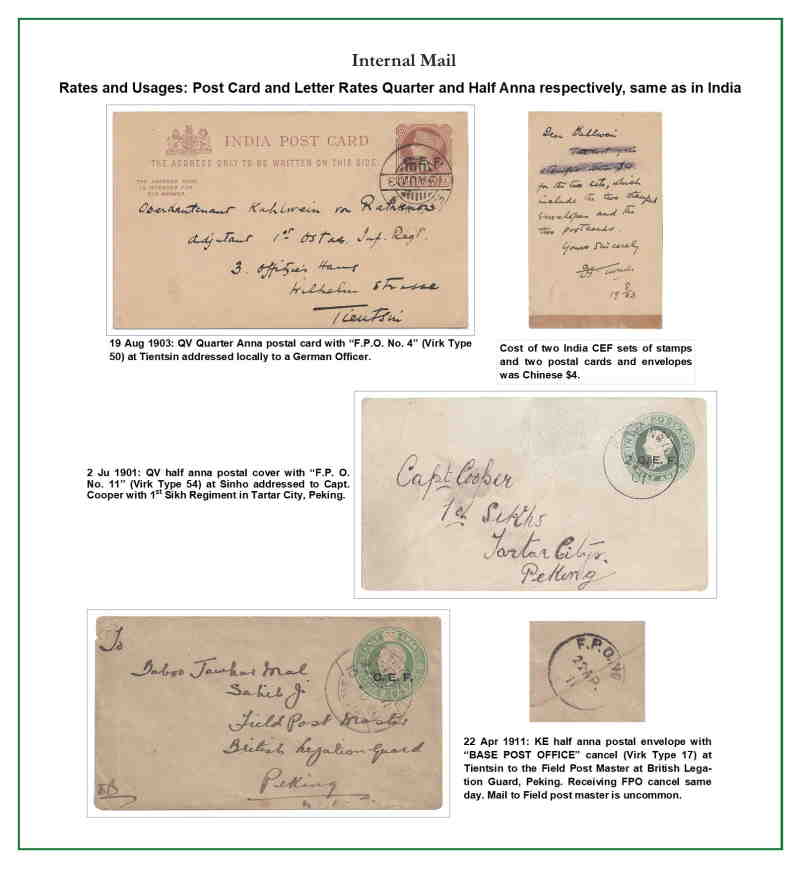 Internal Mail
Rates and Usages: Post Card and Letter Rates Quarter and Half Anna respectively, same as in India
INDIA POST CARD
THE ADDRESS ONLY TO BE WRITTEN ON THIS SIDE.
C.E.F.
Oberleutenant Kahlwein von
Adjutant 1st Ostas. Inf. Regt.
3. Offizier's Haus
Wilhelm Strasse
Tientsin
19 Aug 1903: QV Quarter Anna postal card with “F.P.O. No. 4” (Virk Type
50) at Tientsin addressed locally to a German Officer.
Dear Kahlwein
for the two sets, which
include the two stamped
envelopes and the
two postcards.
Yours Sincerely
Cost of two India CEF sets of stamps
and two postal cards and envelopes
was Chinese $4.
C.E.F.
Capt Cooper
1st Sikhs
Tartar City
Peking
2 Ju 1901: QV half anna postal cover with “F.P. O.
No. 11” (Virk Type 54) at Sinho addressed to Capt.
Cooper with 1st Sikh Regiment in Tartar City, Peking.
To
C.E.F.
Baboo Jawhar Mal
Saheb Ji
Field Post Master
British Legation Guard
Peking
F.P.O. No
22 AP.
11
22 Apr 1911: KE half anna postal envelope with
“BASE POST OFFICE” cancel (Virk Type 17) at
Tientsin to the Field Post Master at British Lega-
tion Guard, Peking. Receiving FPO cancel same
day. Mail to Field post master is uncommon.